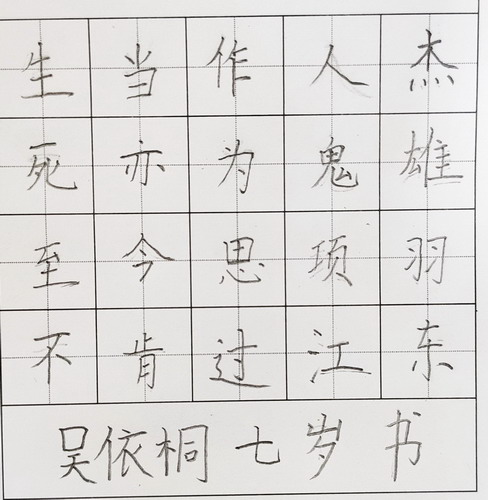 生当作人杰
死亦为鬼雄
至今思项羽
不肯过江东
吴依桐 七岁 书